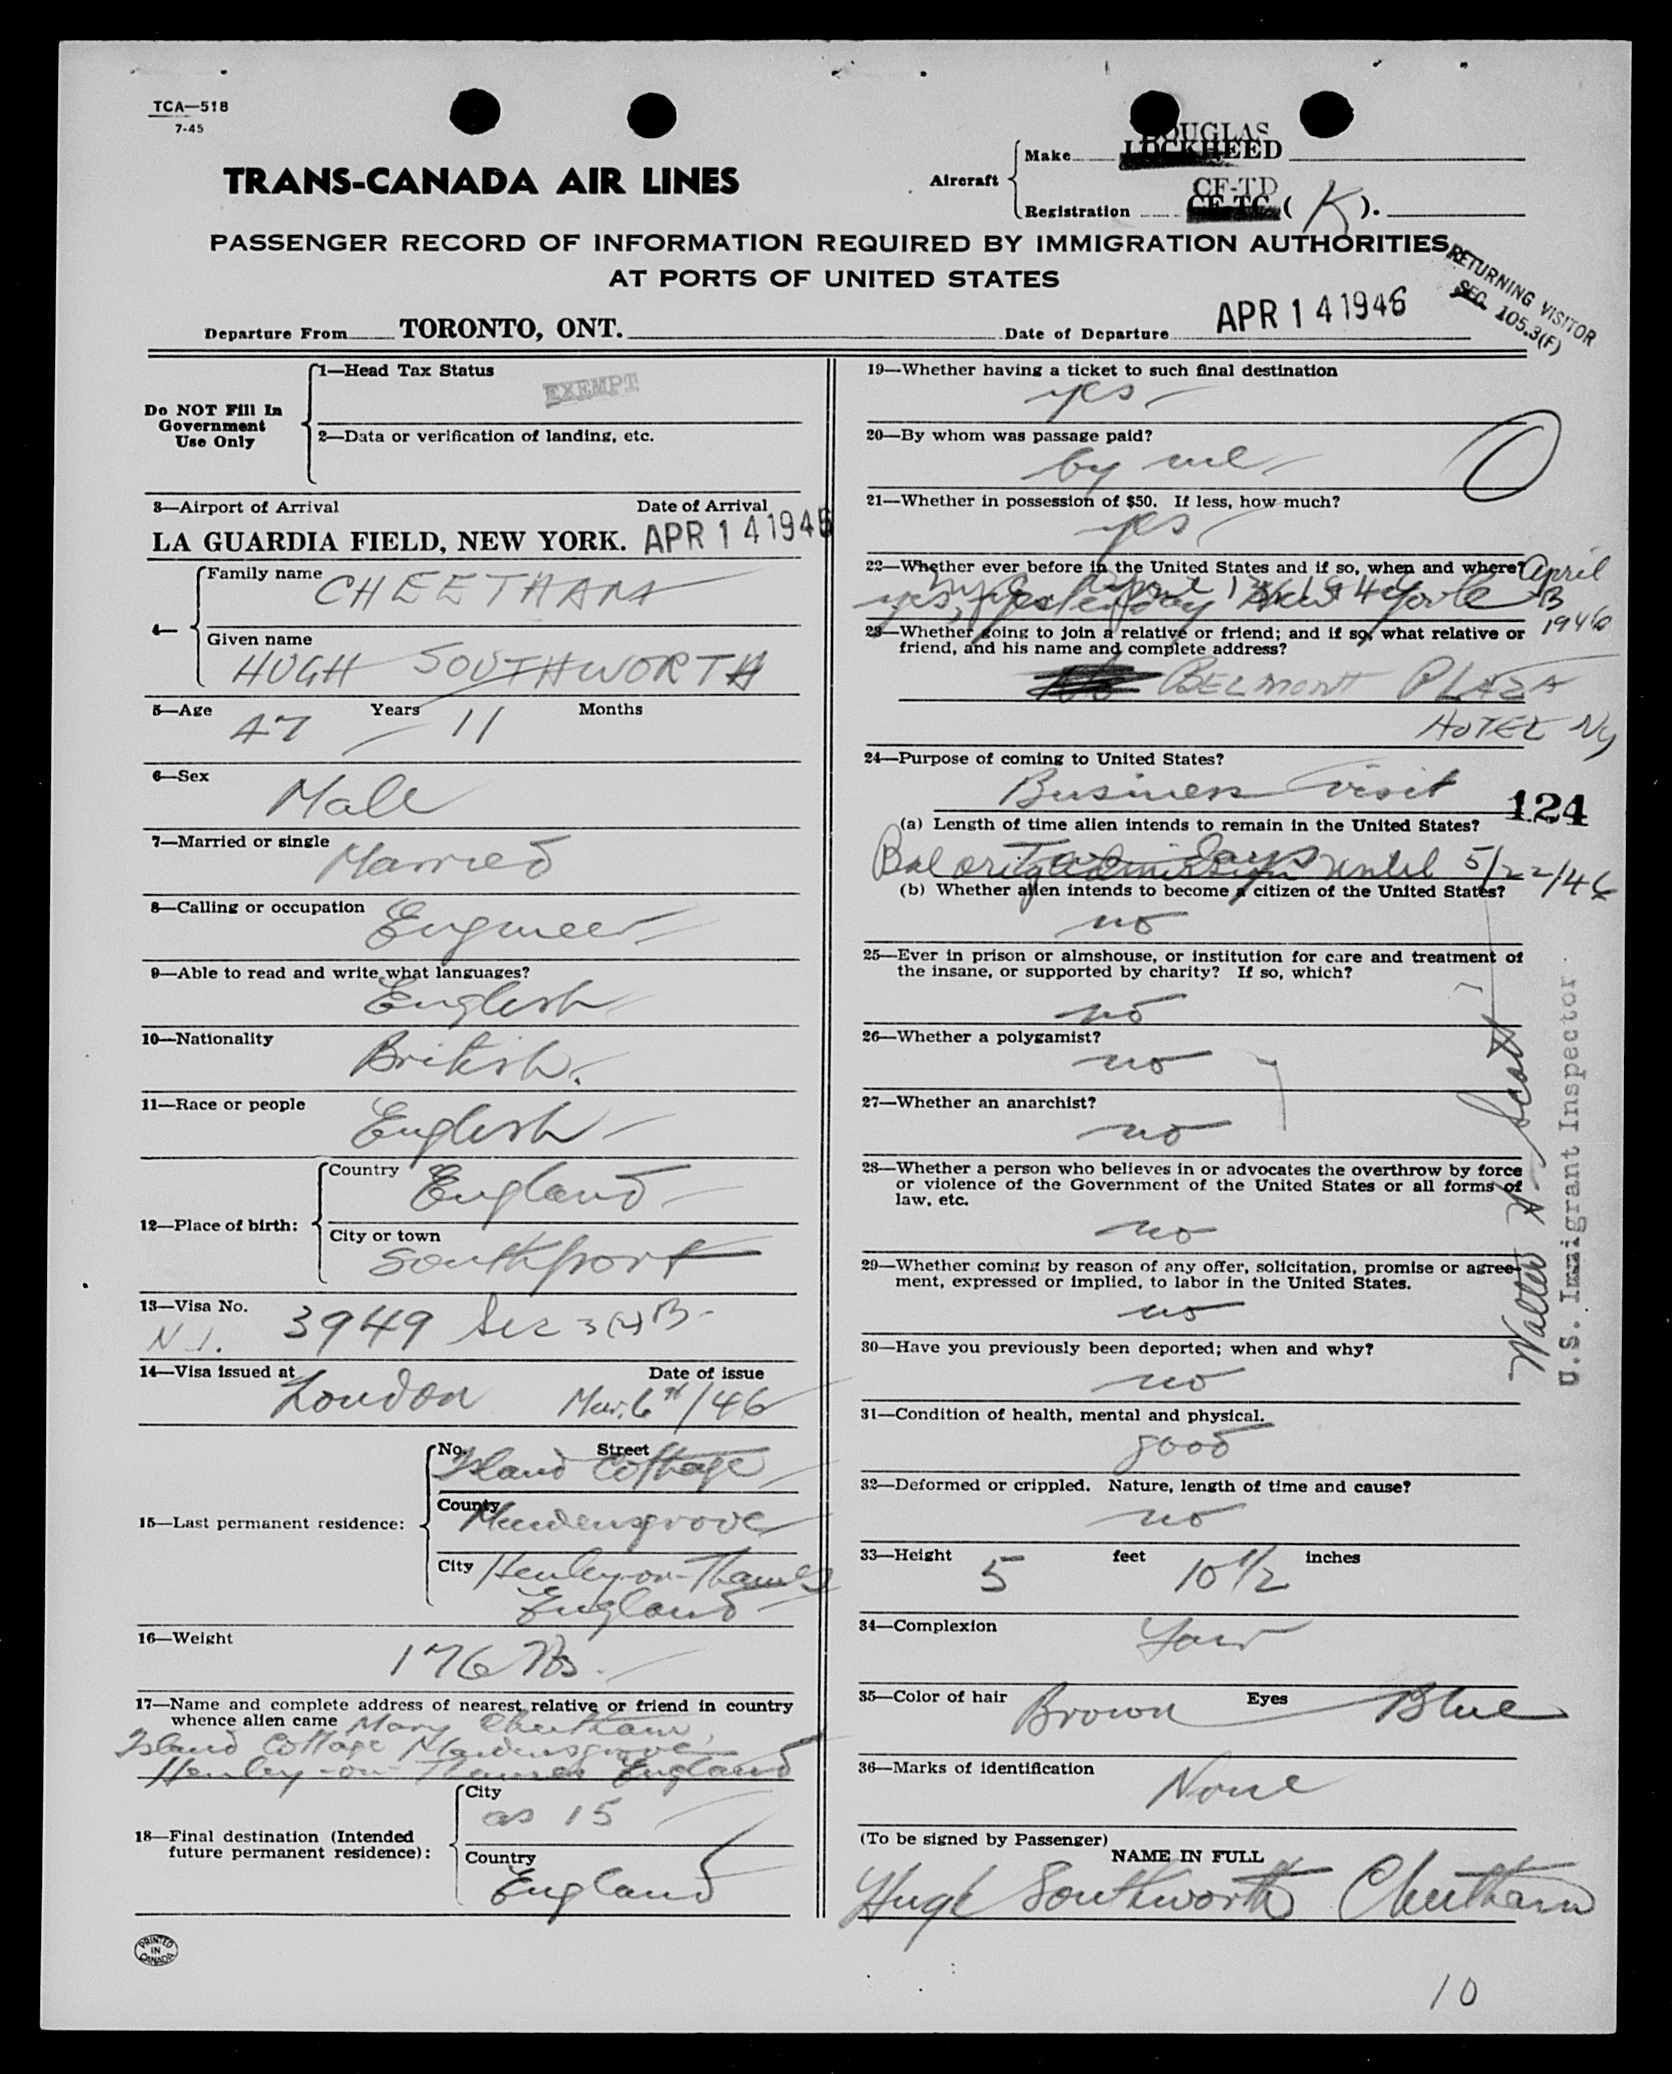 TCA—518
7-45
DOUGLAS
Make LOCKHEED
TRANS-CANADA AIR LINES
Aircraft
CF-TD
Registration CF-TC ( K ).
PASSENGER RECORD OF INFORMATION REQUIRED BY IMMIGRATION AUTHORITIES
AT PORTS OF UNITED STATES
RETURNING VISITOR
SEC. 105.3(F)
Departure From TORONTO, ONT. Date of Departure APR 14 1946
Do NOT Fill In
Government
Use Only
1—Head Tax Status
EXEMPT
2—Data or verification of landing, etc.
3—Airport of Arrival Date of Arrival
LA GUARDIA FIELD, NEW YORK. APR 14 1946
4—
Family name
CHEETHAM
Given name
HUGH SOUTHWORTH
5—Age 47 Years 11 Months
6—Sex
Male
7—Married or single
Married
8—Calling or occupation
Engineer
9—Able to read and write what languages?
English
10—Nationality
British.
11—Race or people
English
12—Place of birth:
Country
England
City or town
Southport
13—Visa No.
N.I. 3949 Sec 3(2)B
14—Visa issued at Date of issue
London Mar. 6th/46
15—Last permanent residence:
No. Street
Island Cottage
County
Maidensgrove
City Henley-on-Thames
England
16—Weight
176 lbs.
17—Name and complete address of nearest relative or friend in country
whence alien came Mary Cheetham,
Island Cottage Maidensgrove,
Henley-on-Thames England
18—Final destination (Intended
future permanent residence):
City
as 15
Country
England
PRINTED
IN
CANADA
19—Whether having a ticket to such final destination
yes
20—By whom was passage paid?
by me
O
21—Whether in possession of $50. If less, how much?
yes
22—Whether ever before in the United States and if so, when and where? April
NYC April 13 1946
yes, yesterday New York 13
1946
23—Whether going to join a relative or friend; and if so, what relative or
friend, and his name and complete address?
BELMONT PLAZA
HOTEL NY
24—Purpose of coming to United States?
Business visit
124
(a) Length of time alien intends to remain in the United States?
Two days
Bal orig admission until 5/22/46
(b) Whether alien intends to become a citizen of the United States?
no
25—Ever in prison or almshouse, or institution for care and treatment of
the insane, or supported by charity? If so, which?
no
26—Whether a polygamist?
no
27—Whether an anarchist?
no
28—Whether a person who believes in or advocates the overthrow by force
or violence of the Government of the United States or all forms of
law, etc.
no
29—Whether coming by reason of any offer, solicitation, promise or agree-
ment, expressed or implied, to labor in the United States.
no
30—Have you previously been deported; when and why?
no
31—Condition of health, mental and physical.
good
32—Deformed or crippled. Nature, length of time and cause?
no
33—Height 5 feet 10 1/2 inches
34—Complexion
Fair
35—Color of hair Brown Eyes Blue
36—Marks of identification
None
(To be signed by Passenger)
NAME IN FULL
Hugh Southworth Cheetham
Walter H. Scott
U.S. Immigrant Inspector
10